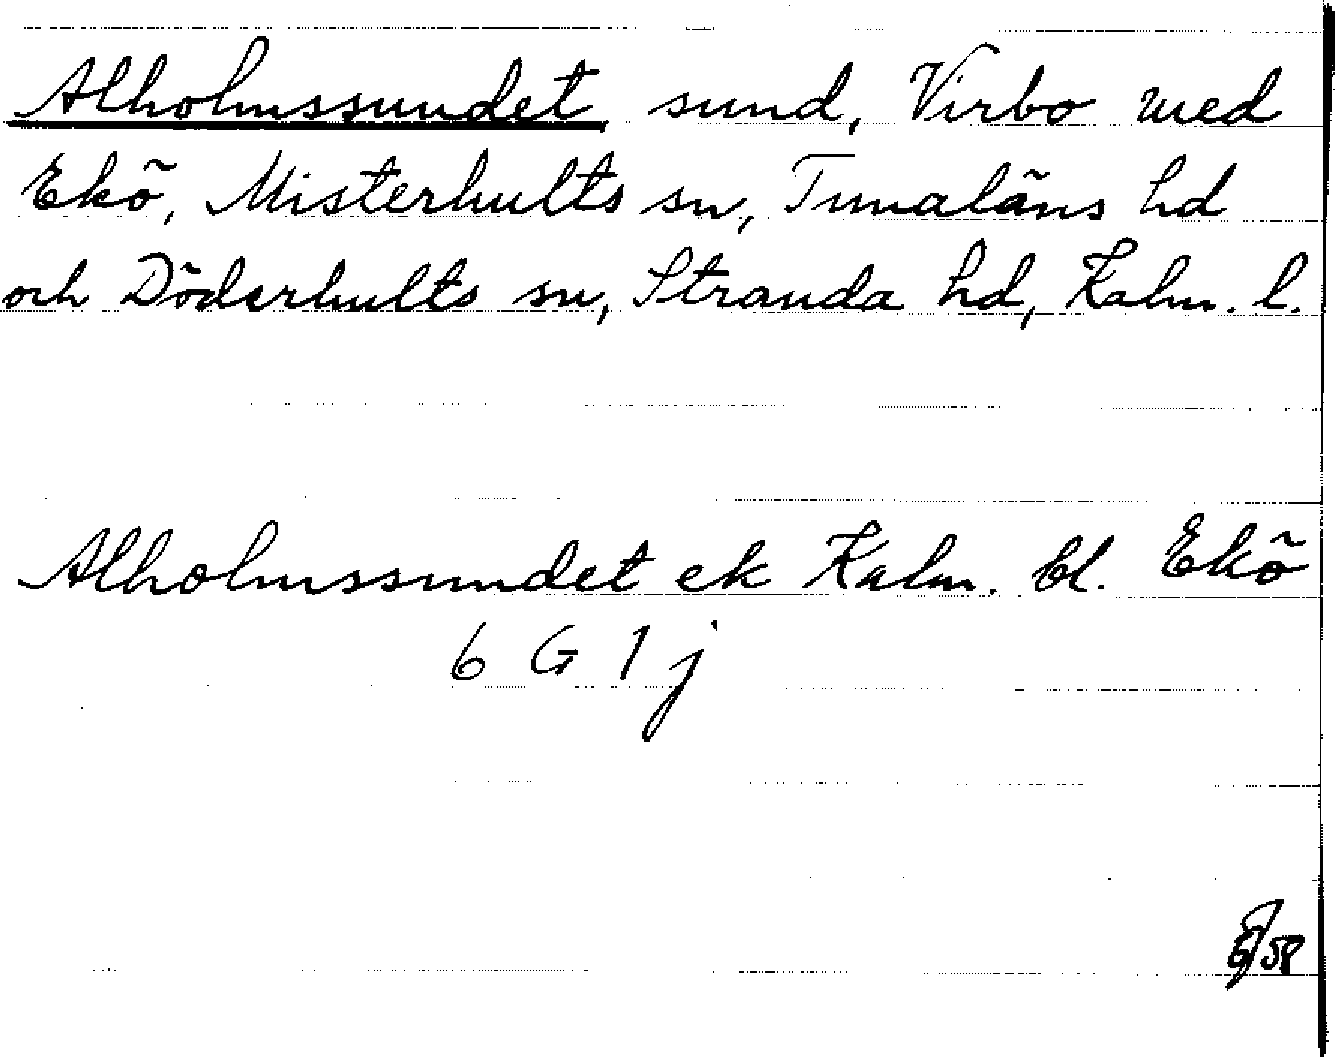 Alholmssundet, sund, Virbo med
Ekö, Misterhults sn, Tunaläns hd
och Döderhults sn, Stranda hd, Kalm. l.
Alholmssundet ek Kalm. bl. Ekö
6 G 1 j